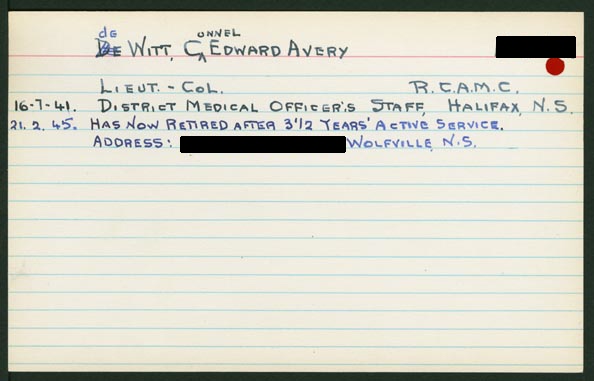 de WITT, CONNEL EDWARD AVERY
LIEUT. - COL. R.C.A.M.C.
16-7-41. DISTRICT MEDICAL OFFICER'S STAFF, HALIFAX, N.S.
21.2.45. HAS NOW RETIRED AFTER 3 1/2 YEARS' ACTIVE SERVICE.
ADDRESS: WOLFVILLE, N.S.